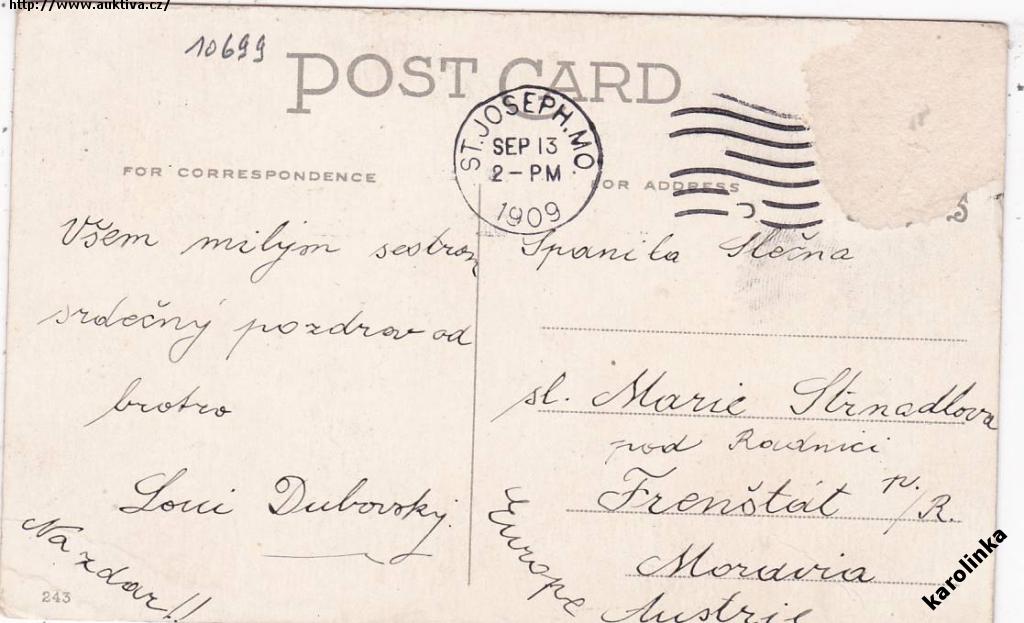 http://www.auktiva.cz/
10699
POST CARD
ST. JOSEPH. MO.
SEP 13
2-PM
1909
FOR CORRESPONDENCE
FOR ADDRESS
Všem milým sestram
srdečný pozdrav od
bratra
Loui Dubovský.
Na zdar!!
243
Spanila Slečna
sl. Marie Strnadlova
pod Radnici
Frenštát p./R.
Moravia
Austrie
Europe
karolinka